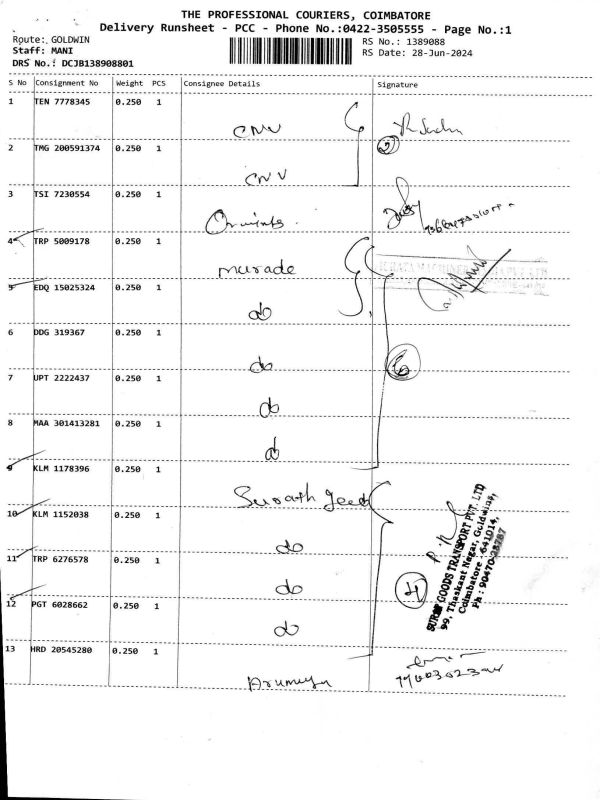 THE PROFESSIONAL COURIERS, COIMBATORE
Delivery Runsheet - PCC - Phone No.:0422-3505555 - Page No.:1
Route: GOLDWIN
Staff: MANI
DRS No.: DCJB138908801
RS No.: 1389088
RS Date: 28-Jun-2024
S No Consignment No Weight PCS Consignee Details Signature
1 TEN 7778345 0.250 1
CNV
2 TMG 200591374 0.250 1
CNV
2
3 TSI 7230554 0.250 1
4 TRP 5009178 0.250 1
murade
5 EDQ 15025324 0.250 1
do
6 DDG 319367 0.250 1
do
6
7 UPT 2222437 0.250 1
do
8 MAA 301413281 0.250 1
do
9 KLM 1178396 0.250 1
10 KLM 1152038 0.250 1
do
11 TRP 6276578 0.250 1
do
4
12 PGT 6028662 0.250 1
do
SURAT GOODS TRANSPORT PVT. LTD
99, Thaskant Nagar, Goldwins,
Coimbatore - 641014,
Ph : 90470-28787
13 HRD 20545280 0.250 1